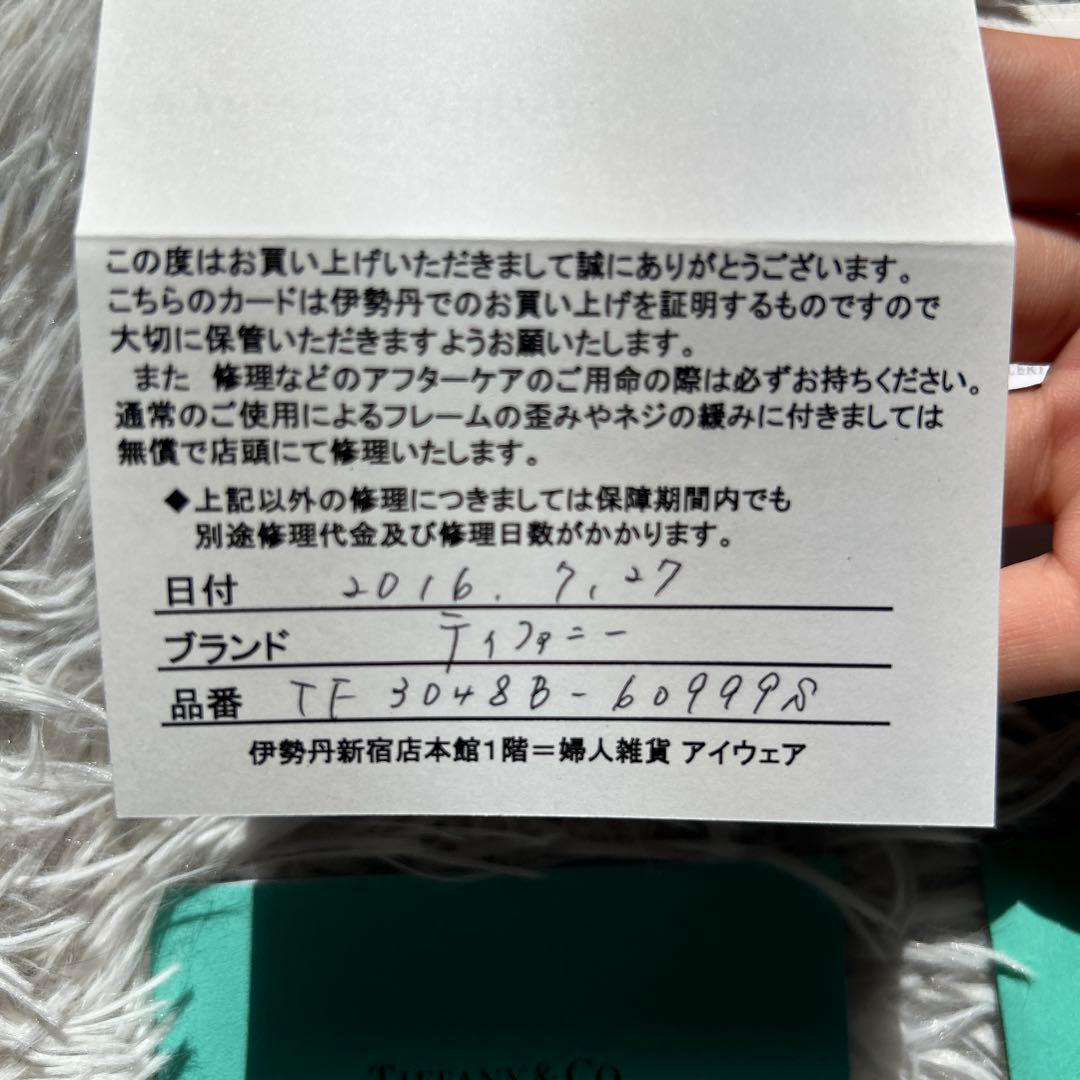 この度はお買い上げいただきまして誠にありがとうございます。
こちらのカードは伊勢丹でのお買い上げを証明するものですので
大切に保管いただきますようお願いいたします。
また 修理などのアフターケアのご用命の際は必ずお持ちください。
通常のご使用によるフレームの歪みやネジの緩みに付きましては
無償で店頭にて修理いたします。
◆上記以外の修理につきましては保障期間内でも
別途修理代金及び修理日数がかかります。
日付 2016.7.27
ブランド ティファニー
品番 TF3048B-60999S
伊勢丹新宿店本館1階=婦人雑貨 アイウェア
TIFFANY & CO.